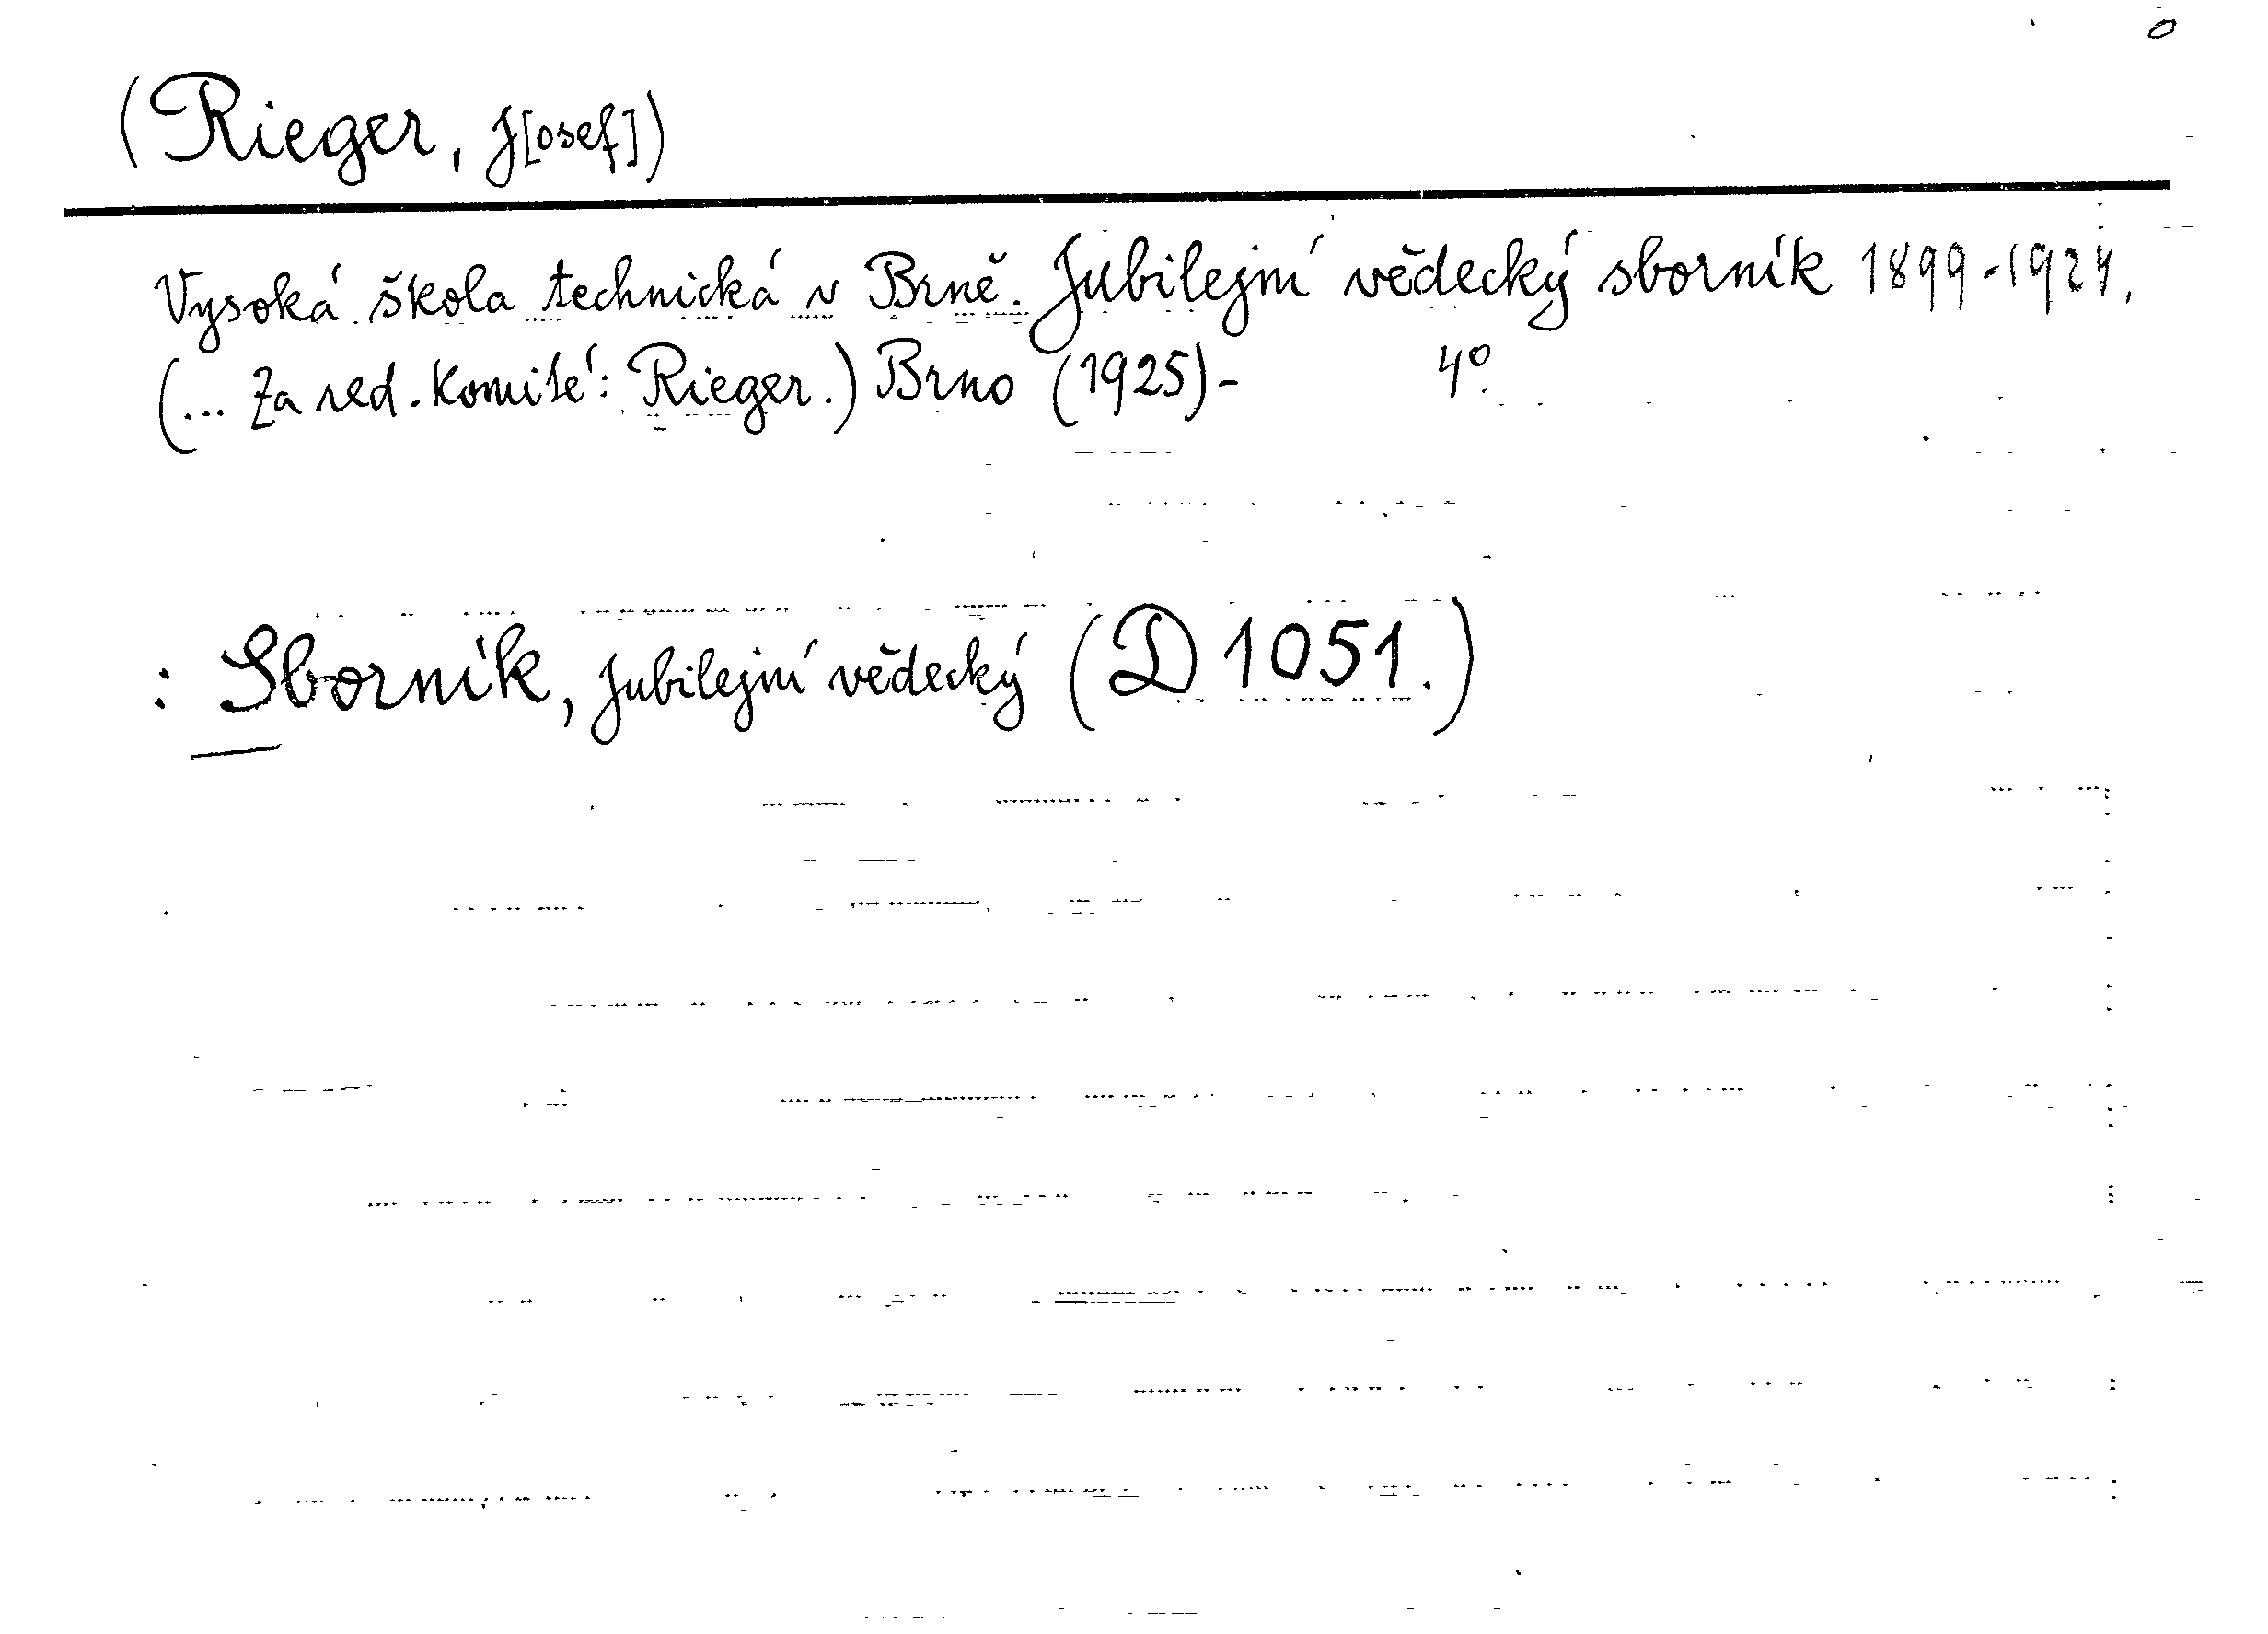 (Rieger, J[osef])
Vysoká škola technická v Brně. Jubilejní vědecký sborník 1899-1924.
(... Za red. komité: Rieger.) Brno (1925)- 4°.
: Sborník, jubilejní vědecký (D 1051.)